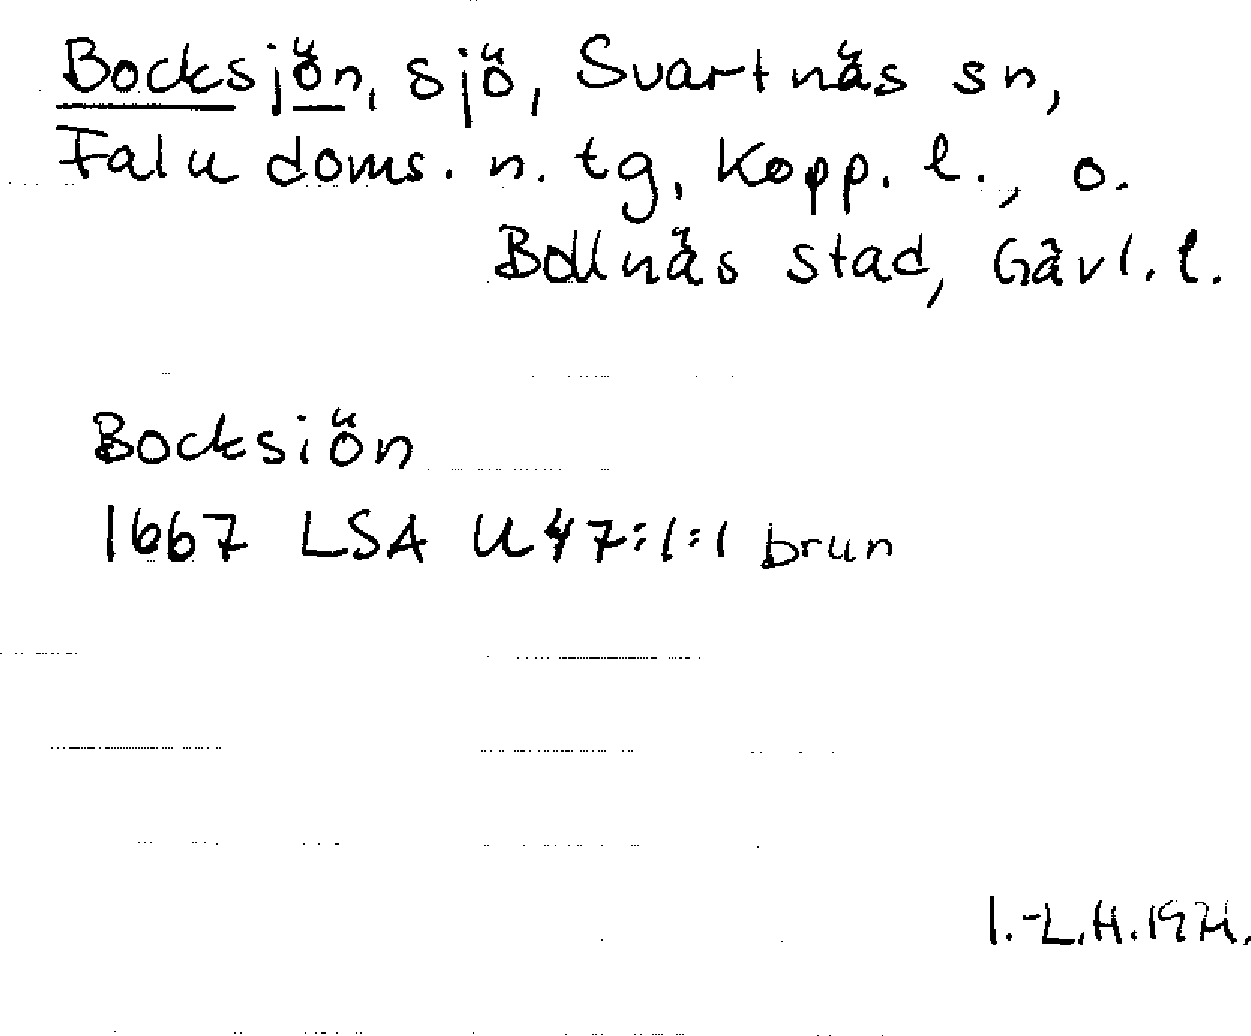 Bocksjön, sjö, Svartnäs sn,
Falu doms. n. tg, Kopp. l., o.
Bollnäs stad, Gävl. l.
Bocksiön
1667 LSA U47:1:1 brun
I.-L.H. 1971.